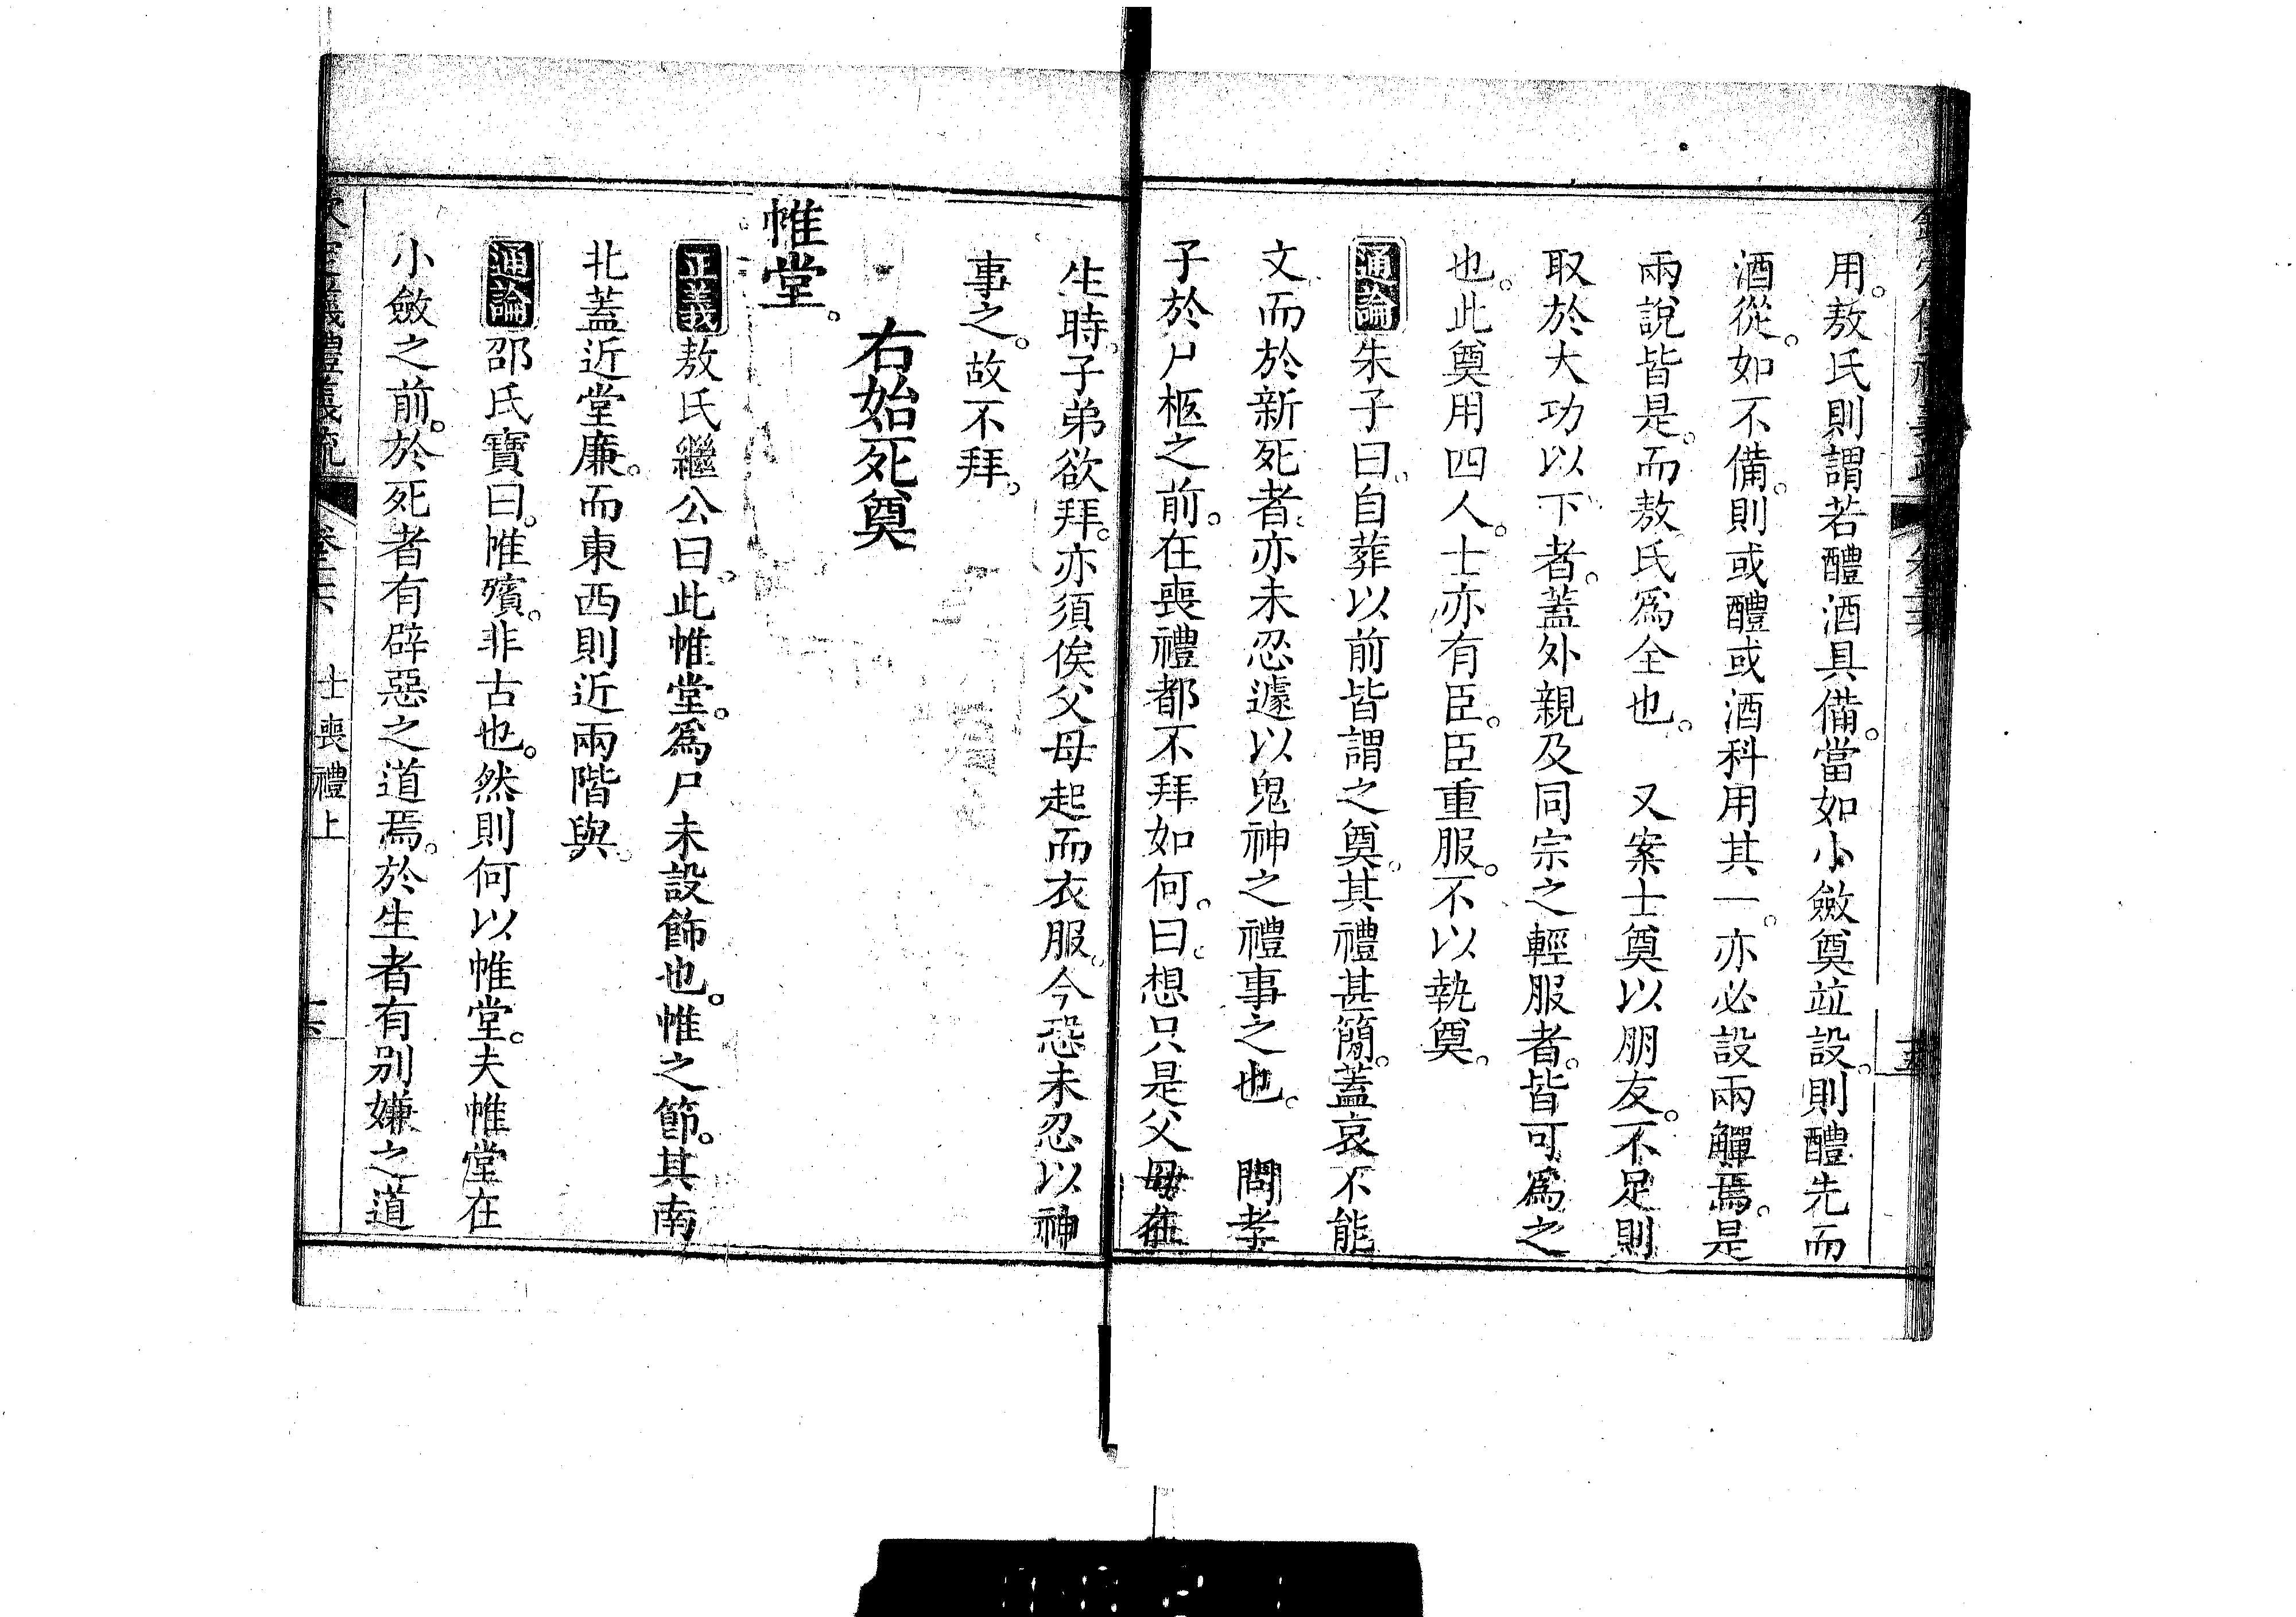 用。敖氏則謂若醴酒具備。當如小斂奠竝設。則醴先而
酒從。如不備。則或醴或酒科用其一。亦必設兩觶焉。是
兩說皆是。而敖氏爲全也。　又案士奠以朋友。不足則
取於大功以下者。蓋外親及同宗之輕服者。皆可爲之
也。此奠用四人。士亦有臣。臣重服。不以執奠。
通論朱子曰。自葬以前皆謂之奠。其禮甚簡。蓋哀不能
文而於新死者。亦未忍遽以鬼神之禮事之也。　問孝
子於尸柩之前。在喪禮都不拜如何。曰。想只是父母在
生時。子弟欲拜。亦須俟父母起而衣服。今恐未忍以神
事之。故不拜。
右始死奠
帷堂。
正義敖氏繼公曰。此帷堂。爲尸未設飾也。帷之節。其南
北蓋近堂廉。而東西則近兩階與。
通論邵氏寶曰。帷殯。非古也。然則何以帷堂。夫帷堂在
小斂之前。於死者有辟惡之道焉。於生者有别嫌之道
士喪禮上